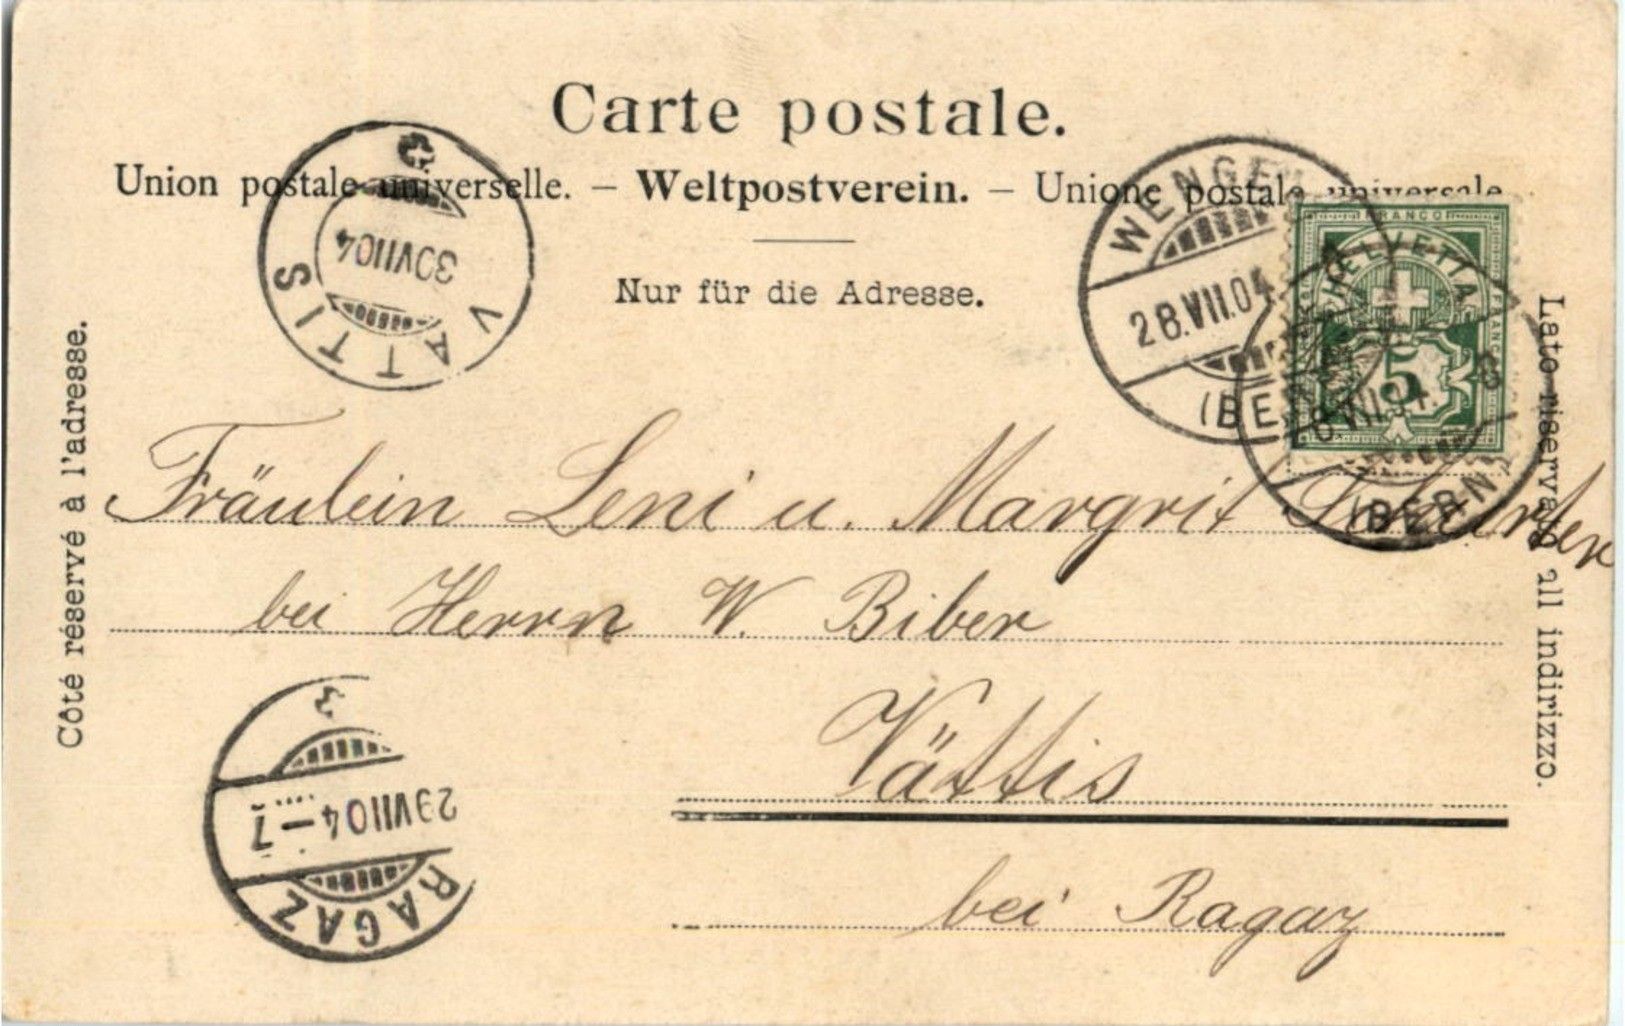 Carte postale.
Union postale universelle. – Weltpostverein. – Unione postale universale
Nur für die Adresse.
Côté réservé à l'adresse.
Lato riservato all indirizzo.
VÄTTIS
30VII04
WENGEN
28.VII.04
(BERN)
FRANCO
HELVETIA
FRANCO
5
VII.04.
(BERN)
Fräulein Leni u. Margrit
bei Herrn W. Biber
Vättis
bei Ragaz
29VII04–7
RAGAZ